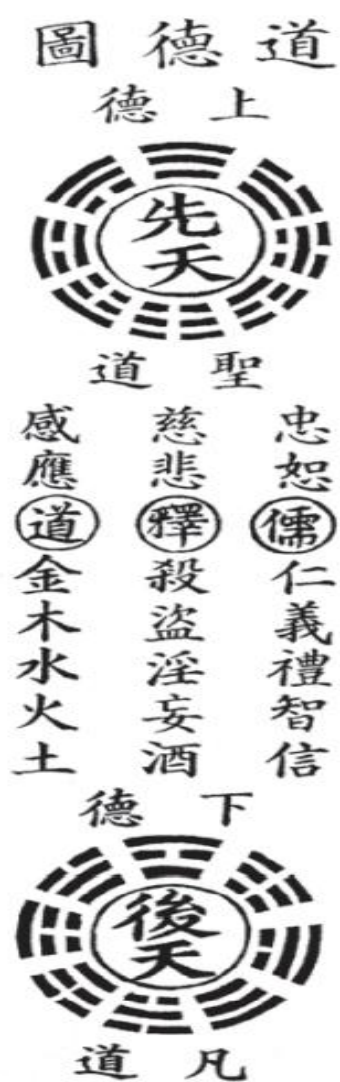 道德圖
上德
先天
聖道
忠恕儒仁義禮智信
慈悲釋殺盜淫妄酒
感應道金木水火土
下德
後天
凡道